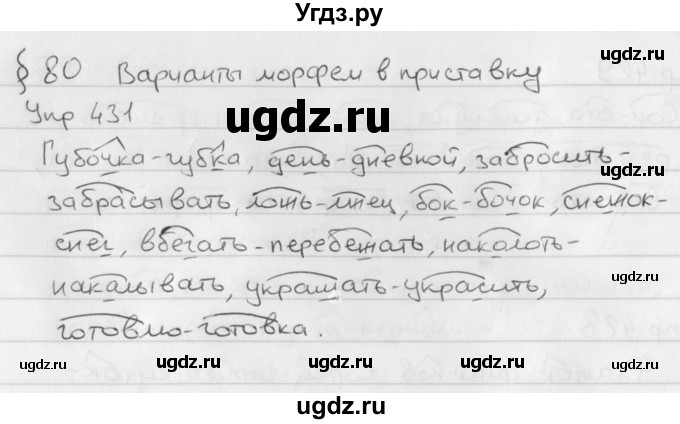 Угдз.ру
§ 80 Варианты морфем в приставку
ugdz.ru
Упр 431
ugdz.ru
Губочка-губка, день-дневной, забросить-
ugdz.ru
забрасывать, ложь-лжец, бок-бочок, снежок-
снег, вбегать-перебежать, наколоть-
накалывать, украшать-украсить,
ugdz.ru
готовлю-готовка.
ugdz.ru ugdz.ru ugdz.ru ugdz.ru
ugdz.ru